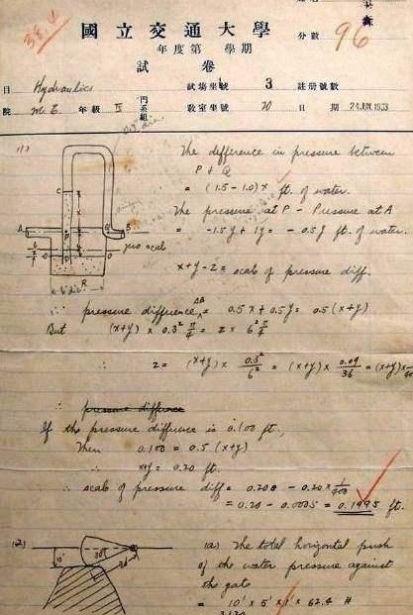 國立交通大學
分數 96
年度第 學期
試卷
目 Hydraulics 試場坐號 3 註册號數
院 M.E. 年級 IV 門系組 教室坐號 20 日期 24 JUN 1933
(1) The difference in pressure between
P + Q
= (1.5 - 1.0) x ft. of water.
The pressure at P - Pressure at A
= -1.5y + 1y = -0.5y ft. of water.
zero scale
x+y-z = scale of pressure diff.
∴ pressure difference AB = 0.5x + 0.5y = 0.5 (x+y)
But (x+y) x 0.3² π/4 = z x 6² π/4
∴ z = (x+y) x 0.3²/6² = (x+y) x 0.09/36 = (x+y) x
∴ pressure diffrence
If the pressure difference is 0.100 ft,
then 0.100 = 0.5 (x+y)
∴ x+y = 0.20 ft.
∴ scale of pressure diff = 0.200 - 0.20 x 1/400
= 0.20 - 0.0005 = 0.1995 ft.
(2) (a) The total horizontal push
of the water pressure against
the gate
= 10' x 5' x 1' x 62.4 #